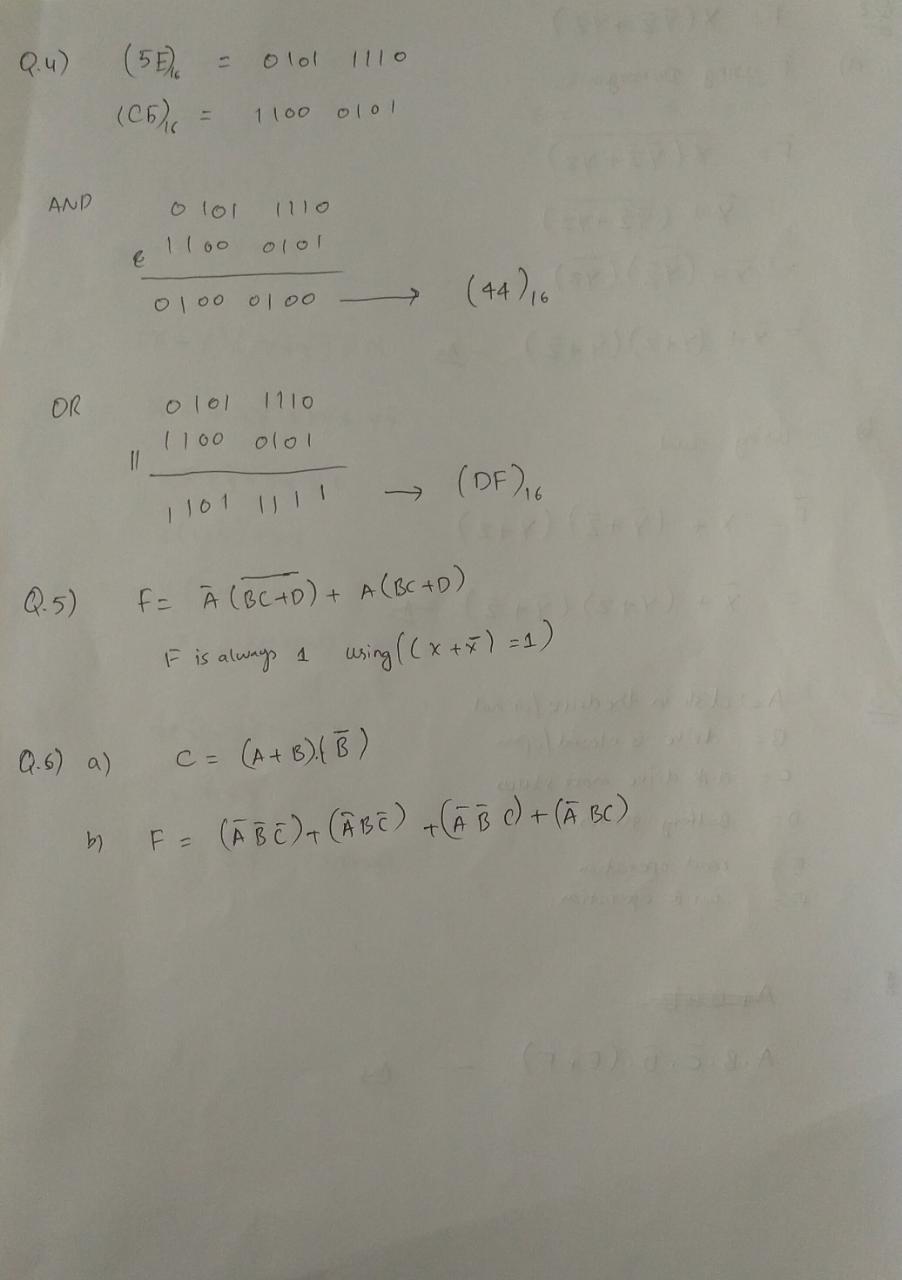 Q.4) (5E)₁₆ = 0101 1110
(C5)₁₆ = 1100 0101
AND 0101 1110
& 1100 0101
0100 0100 → (44)₁₆
OR 0101 1110
|| 1100 0101
1101 1111 → (DF)₁₆
Q.5) F = Ā (B̅C̅+̅D̅) + A(BC+D)
F is always 1 using ((x + x̄) = 1)
Q.6) a) C = (A + B).(B̄)
b) F = (Ā B̄ C̄) + (Ā B C̄) + (Ā B̄ C) + (Ā BC)